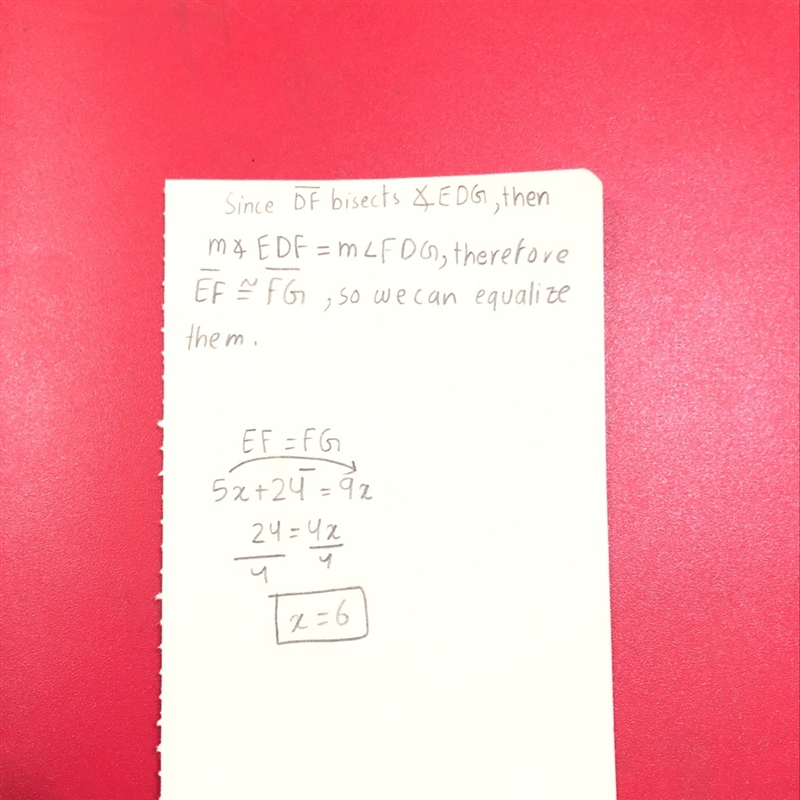 Since D̅F̅ bisects ∡EDG, then
m∡EDF = m∠FDG, therefore
E̅F̅ ≅ F̅G̅, so we can equalize
them.
EF = FG
5x+24 = 9x
24 = 4x
4 4
x = 6